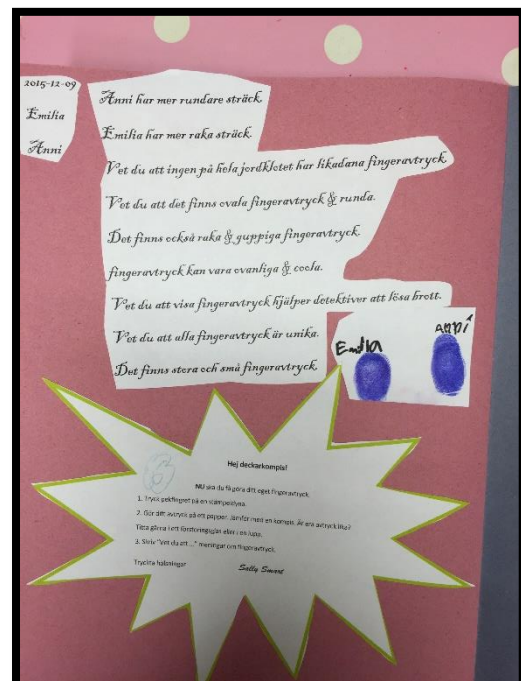 2015-12-09
Emilia
Anni
Anni har mer rundare sträck.
Emilia har mer raka sträck.
Vet du att ingen på hela jordklotet har likadana fingeravtryck.
Vet du att det finns ovala fingeravtryck & runda.
Det finns också raka & guppiga fingeravtryck.
fingeravtryck kan vara ovanliga & coola.
Vet du att visa fingeravtryck hjälper detektiver att lösa brott.
Vet du att alla fingeravtryck är unika.
Det finns stora och små fingeravtryck.
Emilia
Anni
6
Hej deckarkompis!
NU ska du få göra ditt eget fingeravtryck.
1. Tryck pekfingret på en stämpeldyna.
2. Gör ditt avtryck på ett papper. Jämför med en kompis. Är era avtryck lika?
Titta gärna i ett förstoringsglas eller i en lupp.
3. Skriv "Vet du att ..." meningar om fingeravtryck.
Tryckta hälsningar
Sally Smart